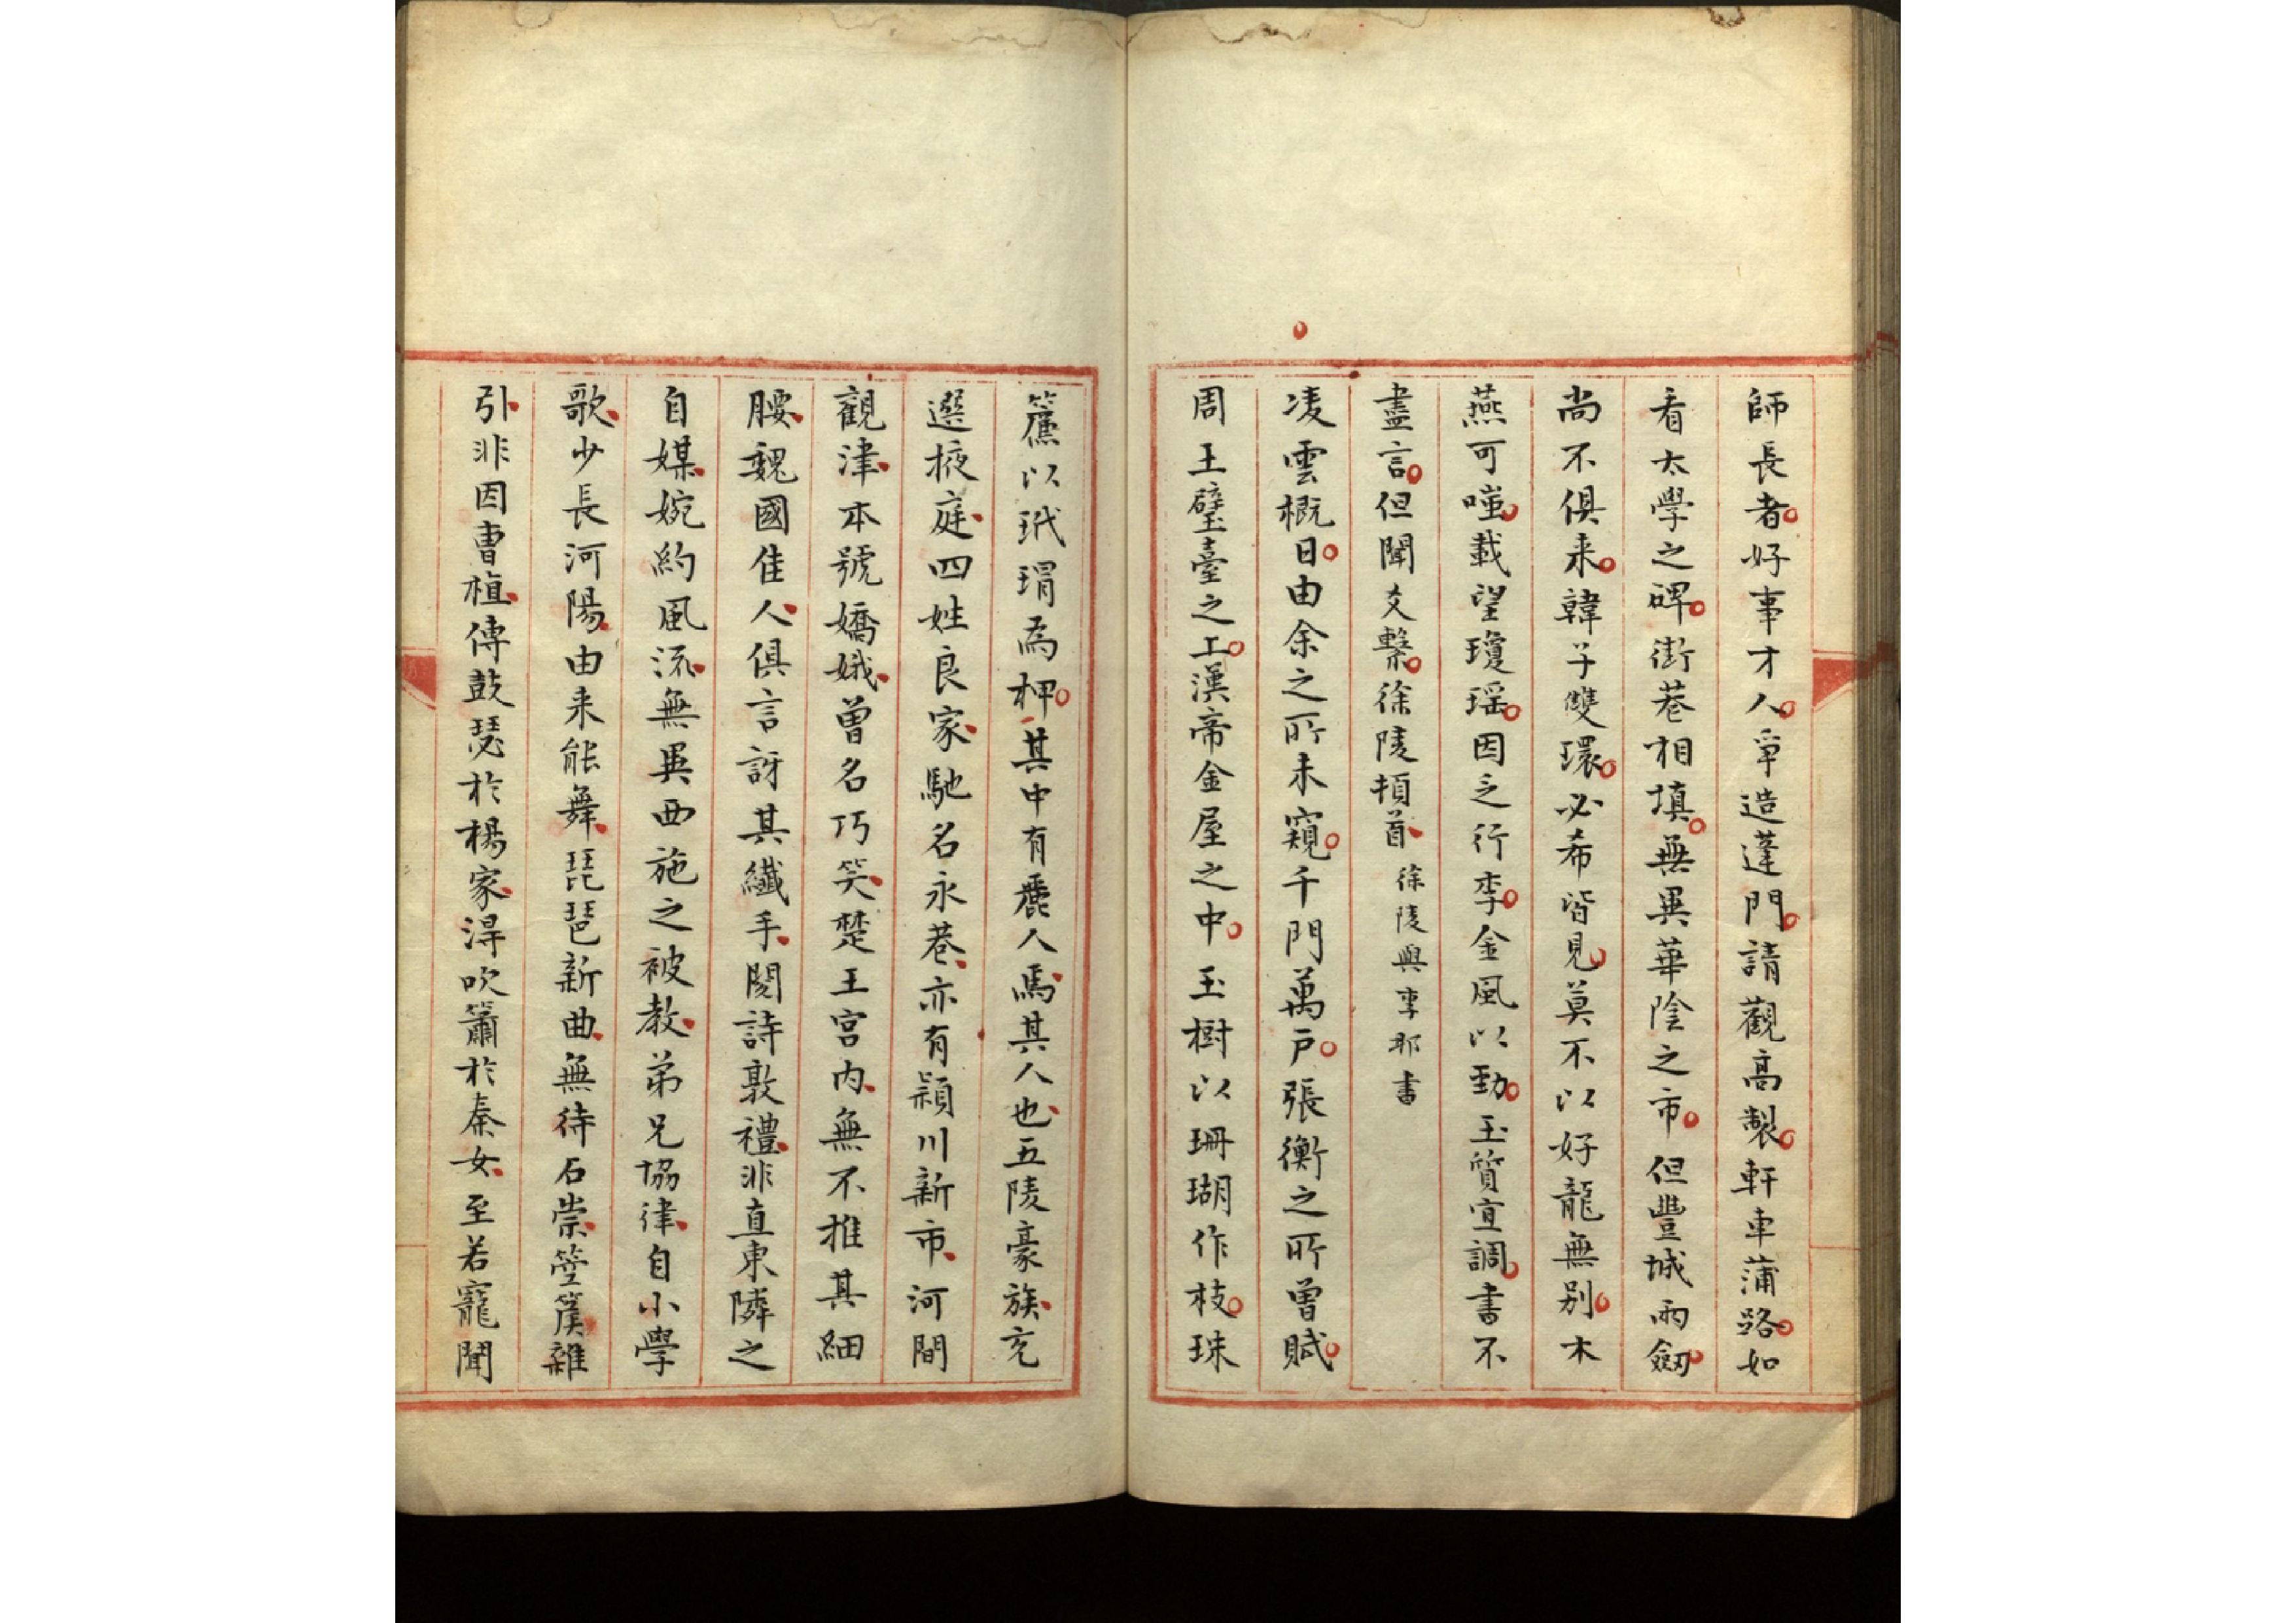 師長者好事才人爭造蓬門請觀高製軒車蒲路如
看太學之碑街巷相填無異華陰之市但豐城兩劔
尚不俱来韓子雙環必希皆見莫不以好龍無别木
燕可嗤載望瓊瑶因乏行李金風以勁玉質宜調書不
盡言但聞爻繫徐陵頓首徐陵與李那書
凌雲概日由余之所未窺千門萬户張衡之所曾賦
周王璧臺之工漢帝金屋之中玉樹以珊瑚作枝珠
簾以玳瑁為柙其中有麗人馬其人也五陵豪族充
選掖庭四姓良家馳名永巷亦有潁川新市河間
觀津本號嬌娥曾名巧笑楚王宫内無不推其細
腰魏國佳人俱言訝其纖手閱詩敦禮非直東隣之
自媒婉約風流無異西施之被教弟兄協律自小學
歌少長河陽由来能舞琵琶新曲無待石崇箜篌雜
引非因曹植傳鼓瑟於楊家淂吹簫於秦女至若寵聞